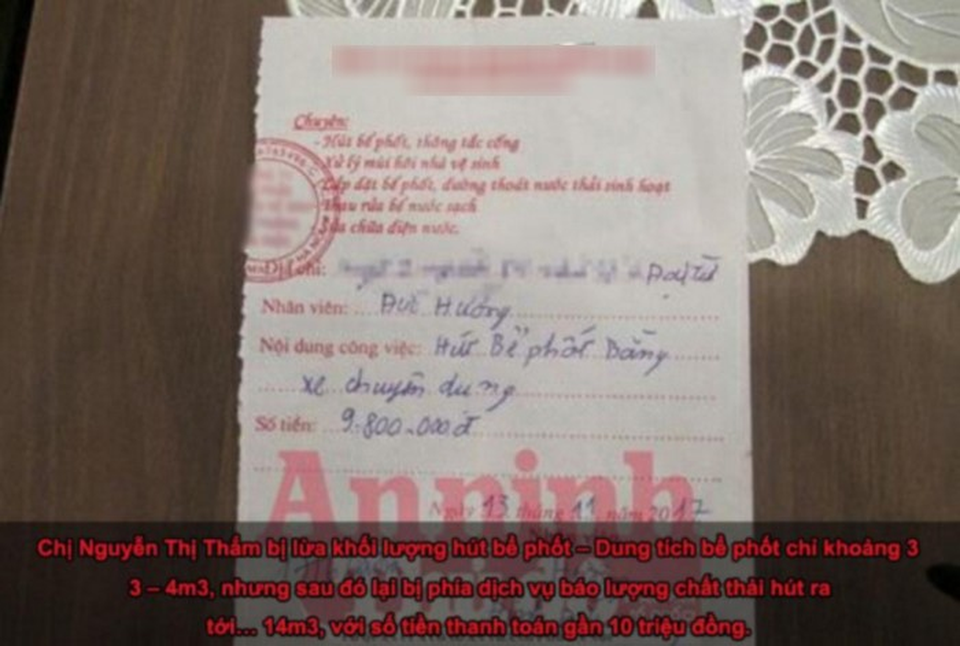 Chuyên:
- Hút bể phốt, thông tắc cống
- Xử lý mùi hôi nhà vệ sinh
- Lắp đặt bể phốt, đường thoát nước thải sinh hoạt
- Thau rửa bể nước sạch
- Sửa chữa điện nước.
Địa chỉ: Đại Từ
Nhân viên: Hướng
Nội dung công việc: Hút Bể phốt Bằng
xe chuyên dụng
Số tiền: 9.800.000đ
An ninh
Ngày 13 tháng 11 năm 2017
Chị Nguyễn Thị Thắm bị lừa khối lượng hút bể phốt – Dung tích bể phốt chỉ khoảng 3
3 – 4m3, nhưng sau đó lại bị phía dịch vụ báo lượng chất thải hút ra
tới... 14m3, với số tiền thanh toán gần 10 triệu đồng.